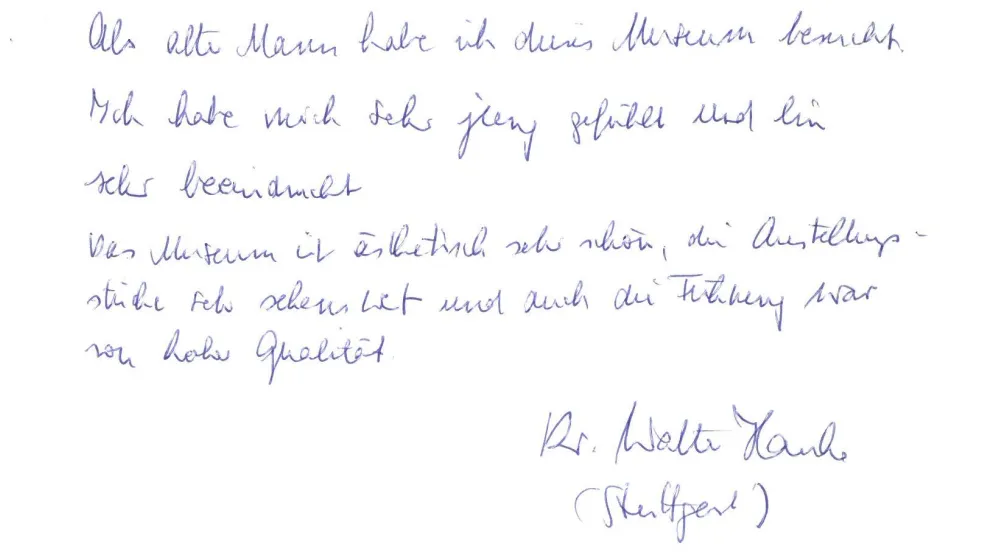 Als alter Mann habe ich dieses Museum besucht.
Ich habe mich sehr jung gefühlt und bin
sehr beeindruckt
Das Museum ist ästhetisch sehr schön, die Ausstellungs-
stücke sehr sehenswert und auch die Führung war
von hoher Qualität.
Dr. Walter
(Stuttgart)